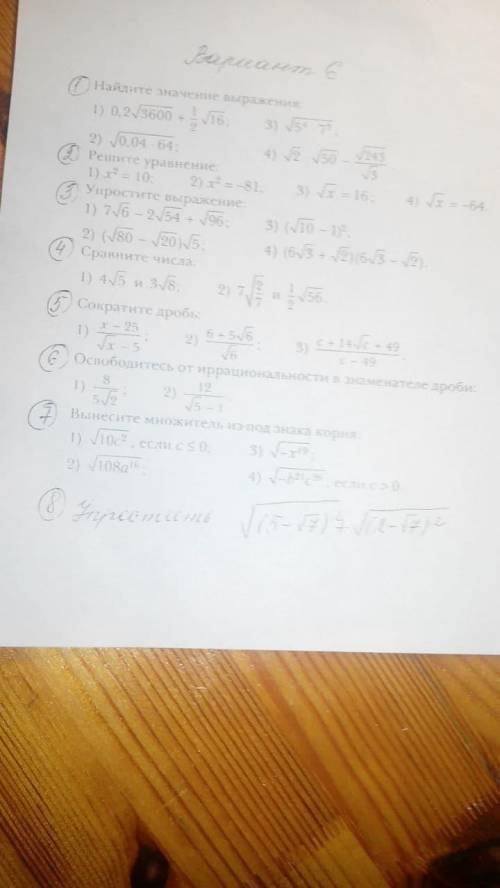 Вариант 6
1 Найдите значение выражения:
1) 0,2√3600 + 1/2 √16; 3) √(5⁴ · 7²);
2) √(0,04 · 64); 4) √2 · √50 − √243/√3
2 Решите уравнение:
1) x² = 10; 2) x² = −81; 3) √x = 16; 4) √x = −64.
3 Упростите выражение:
1) 7√6 − 2√54 + √96; 3) (√10 − 1)²;
2) (√80 − √20)√5; 4) (6√3 + √2)(6√3 − √2).
4 Сравните числа:
1) 4√5 и 3√8; 2) 7√(2/7) и 1/2 √56.
5 Сократите дробь:
1) (x − 25)/(√x − 5); 2) (6 + 5√6)/√6; 3) (c + 14√c + 49)/(c − 49).
6 Освободитесь от иррациональности в знаменателе дроби:
1) 8/(5√2); 2) 12/(√5 − 1)
7 Вынесите множитель из-под знака корня:
1) √(10c²), если c ≤ 0; 3) √(−x¹⁹);
2) √(108a¹⁶); 4) , если c > 0
8 Упростить